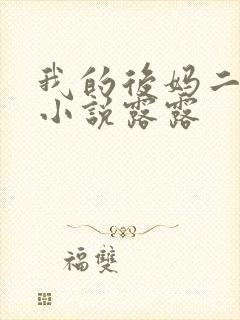 我的後妈二
小說露露
福雙